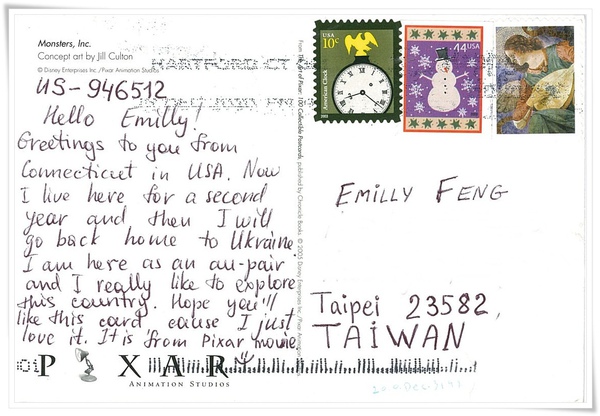 Monsters, Inc.
Concept art by Jill Culton
© Disney Enterprises Inc./Pixar Animation Studios
HARTFORD CT
US-946512
Hello Emilly!
Greetings to you from
Connecticut in USA. Now
I live here for a second
year and then I will
go back home to Ukraine.
I am here as an au-pair
and I really like to explore
this country. Hope you'll
like this card cause I just
love it. It is from Pixar movie
PIXAR
ANIMATION STUDIOS
From The Art of Pixar: 100 Collectible Postcards, published by Chronicle Books. © 2005 Disney Enterprises Inc./Pixar Animation
USA
10c
American Clock
44USA
EMILLY FENG
Taipei 23582,
TAIWAN